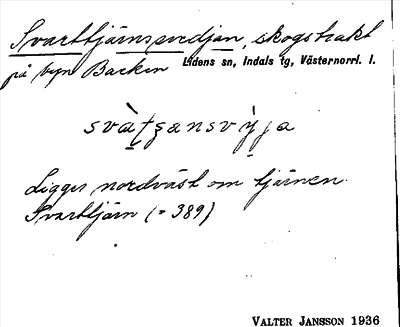 Svarttjärnssvedjan, skogstrakt
på byn Backen Lidens sn, Indals tg, Västernorrl. l.
svàtʂansvỳja
Ligger nordväst om tjärnen
Svarttjärn (= 389)
VALTER JANSSON 1936